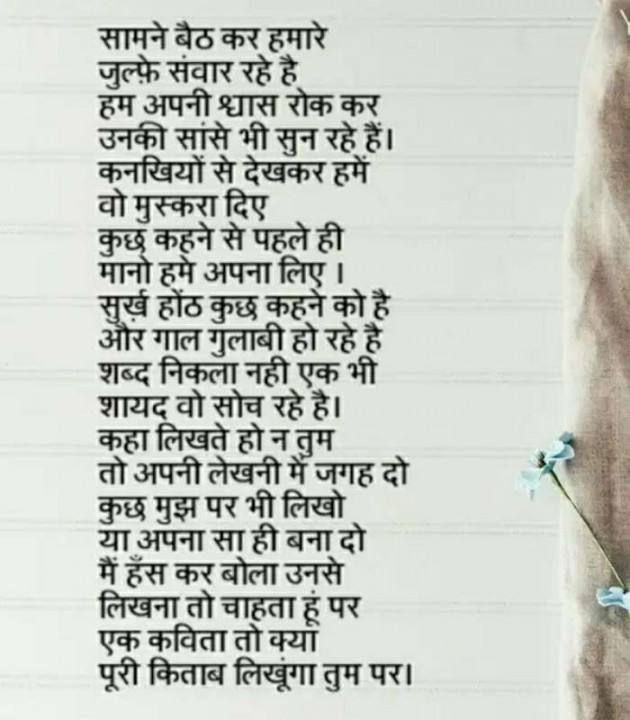 सामने बैठ कर हमारे
जुल्फ़े संवार रहे है
हम अपनी श्वास रोक कर
उनकी सांसे भी सुन रहे हैं।
कनखियों से देखकर हमें
वो मुस्करा दिए
कुछ कहने से पहले ही
मानो हमे अपना लिए ।
सुर्ख़ होंठ कुछ कहने को है
और गाल गुलाबी हो रहे है
शब्द निकला नही एक भी
शायद वो सोच रहे है।
कहा लिखते हो न तुम
तो अपनी लेखनी में जगह दो
कुछ मुझ पर भी लिखो
या अपना सा ही बना दो
मैं हँस कर बोला उनसे
लिखना तो चाहता हूं पर
एक कविता तो क्या
पूरी किताब लिखूंगा तुम पर।